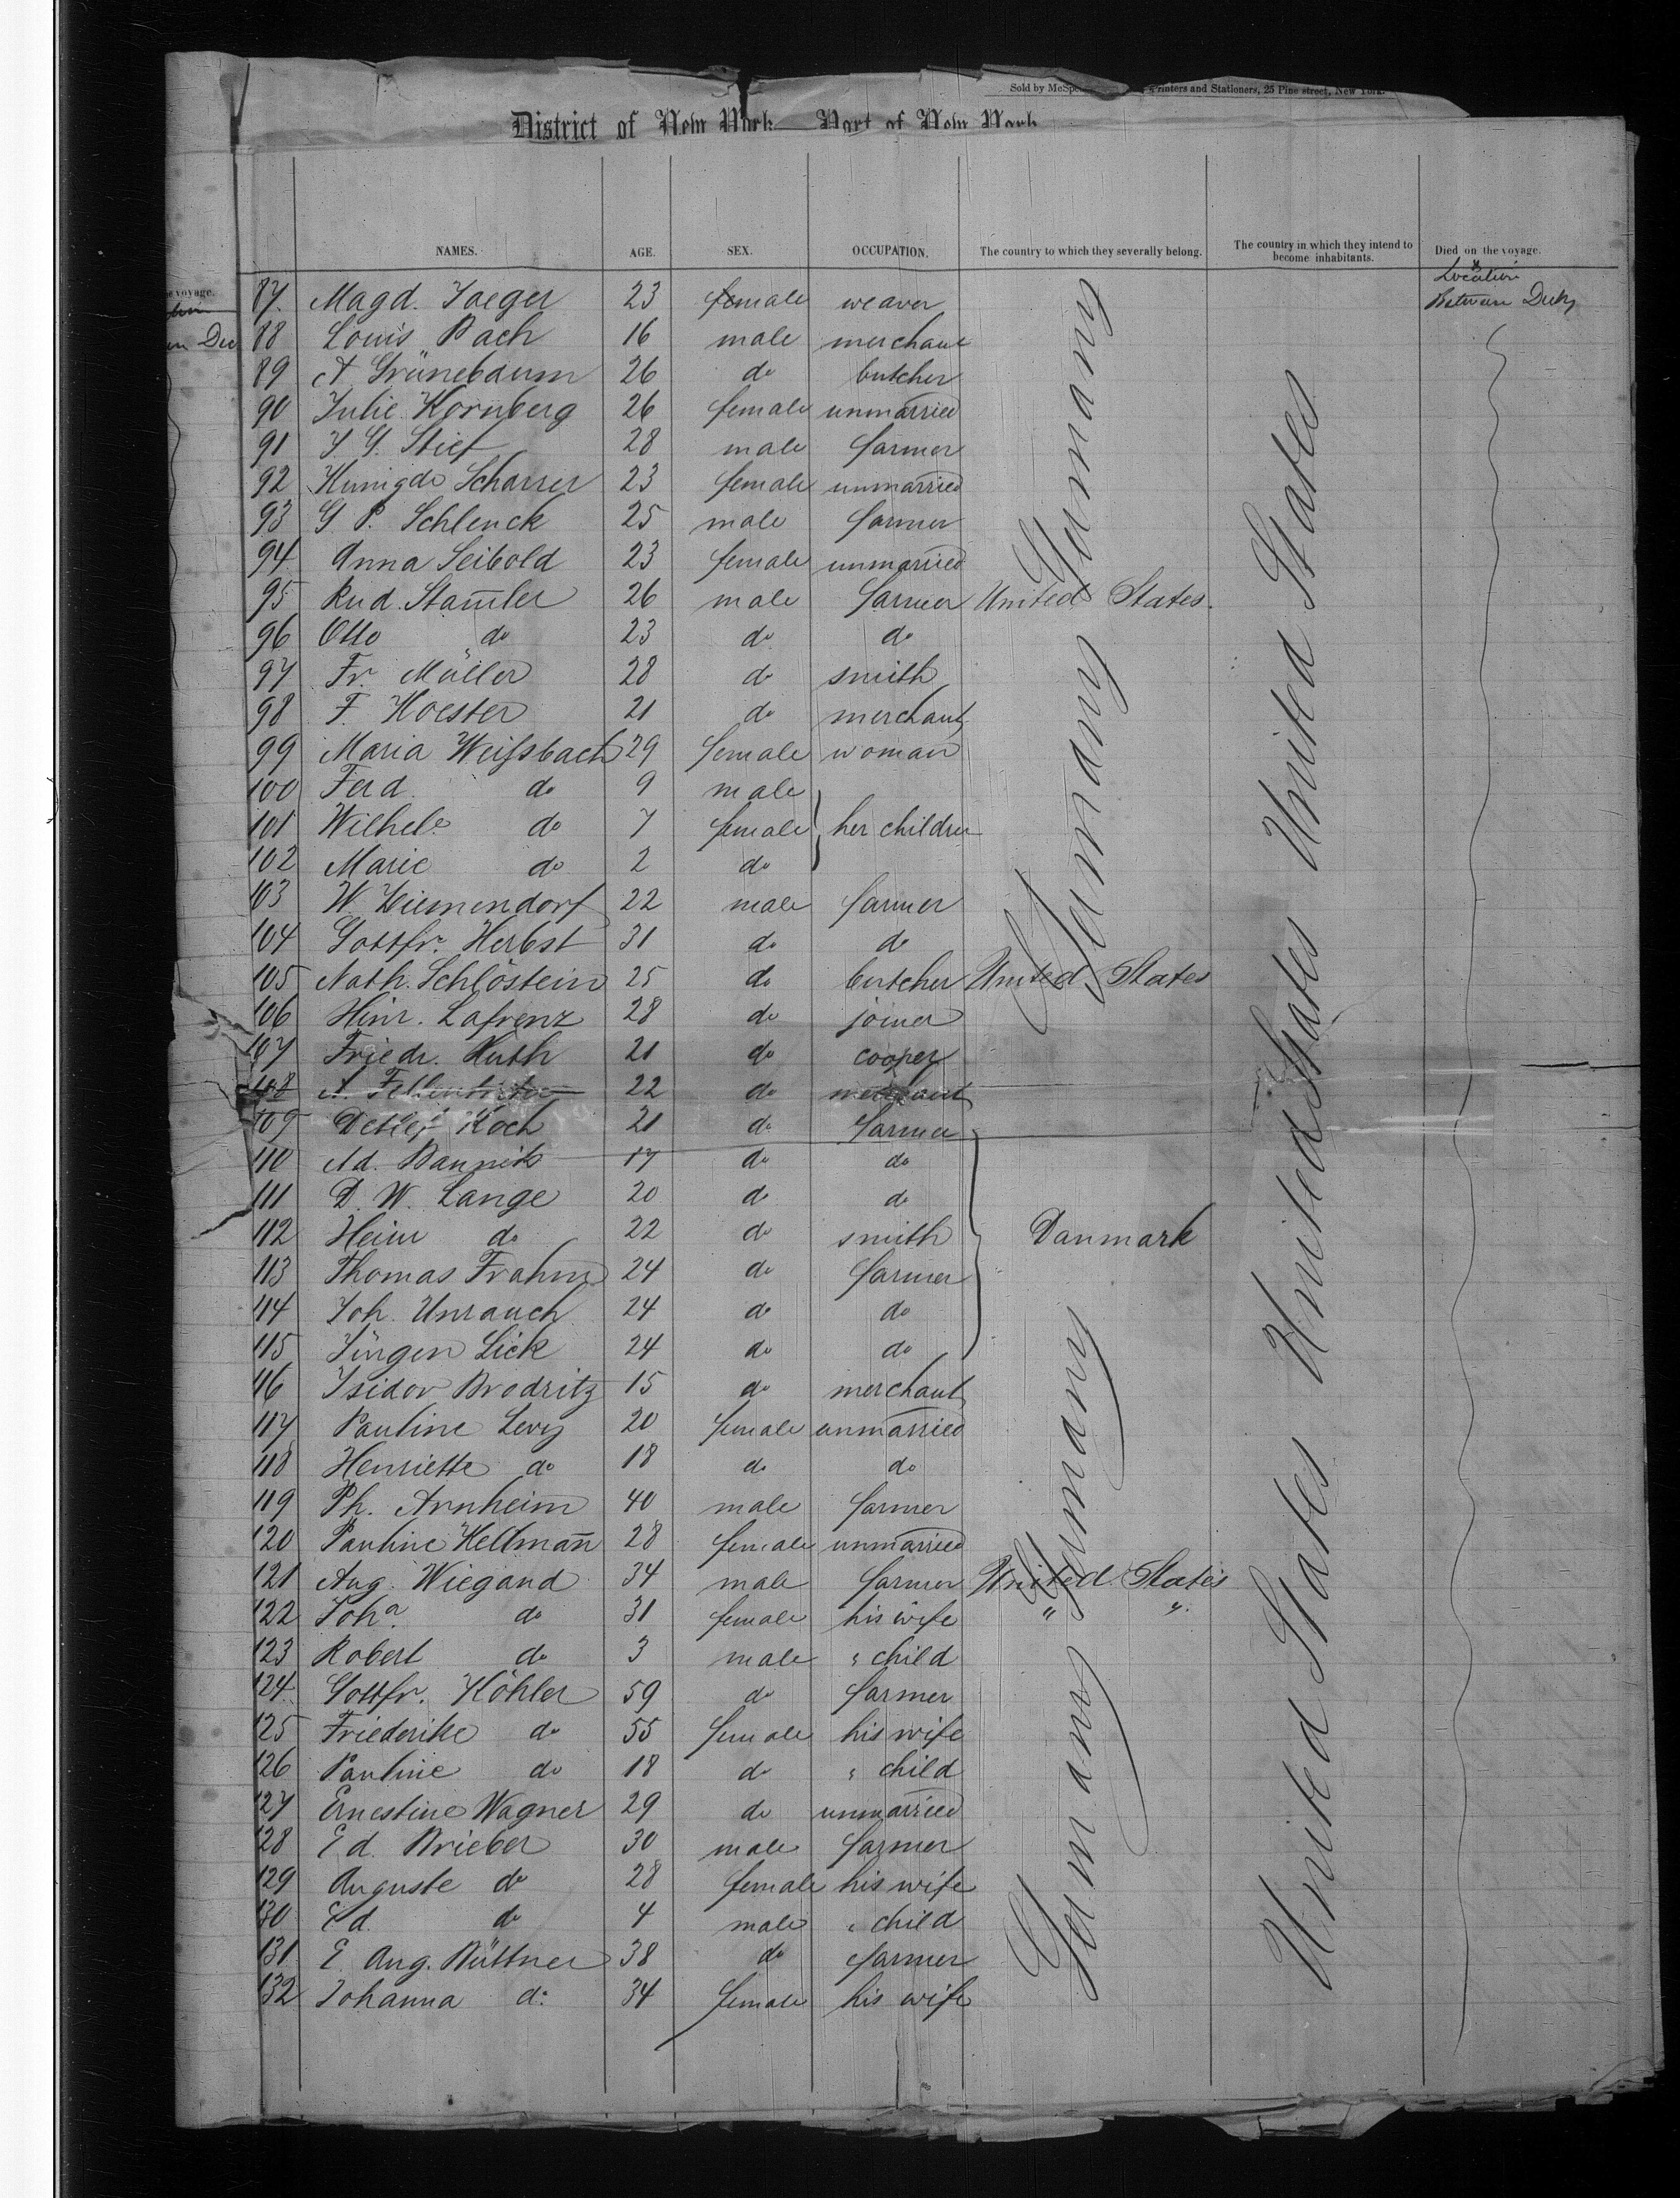 Sold by McSpe Printers and Stationers, 25 Pine street, New York.
District of New York—Port of New York
NAMES. AGE. SEX. OCCUPATION. The country to which they severally belong. The country in which they intend to become inhabitants. Died on the voyage.
e voyage.
Location
87. Magd. Jaeger 23 female weaver Between Decks
88 Louis Bach 16 male merchant
89 A Grünebaum 26 do butcher
90 Julie Kornberg 26 female unmarried
91 J. G. Stief 28 male farmer
92 Kunigde Scharrer 23 female unmarried
93 G P. Schlenck 25 male farmer
94 Anna Seibold 23 female unmarried
Germany
95 Rud. Stam̄ler 26 male farmer United States.
96 Otto do 23 do do
97 Fr. Müller 28 do smith
98 F. Hoester 21 do merchant
99 Maria Weißbach 29 female woman
100 Ferd. do 9 male
101 Wilhele do 7 female her children
102 Marie do 2 do
103 W Ziemendorf 22 male farmer
104 Gottfr. Herbst 31 do do
Germany
United States
105 Nath. Schlöstein 25 do butcher United States
106 Hinr. Lafrenz 28 do joiner
107 Friedr. Huth 21 do cooper
108 A. 22 do merchant
109 Detlef Koch 21 do farmer
110 Ad. Bannick 17 do do
111 D. W. Lange 20 do do
112 Heinr do 22 do smith Danmark
113 Thomas Frahm 24 do farmer
114 Joh. Unrauch 24 do do
115 Jürgen Lick 24 do do
United States
116 Isidor Brodritz 15 do merchant
117 Pauline Levy 20 female unmarried
118 Henriette do 18 do do
119 Ph. Arnheim 40 male farmer
120 Pauline Hellman̄ 28 female unmarried
Germany
121 Aug. Wiegand 34 male farmer United States
122 Joha. do 31 female his wife " "
123 Robert do 3 male " child
124. Gottfr. Köhler 59 do farmer
125 Friederike do 55 female his wife
126 Pauline do 18 do " child
127 Ernestine Wagner 29 do unmarried
128 Ed. Brieber 30 male farmer
129 Auguste do 28 female his wife
130 Ed. do 4 male " child
131 E. Aug. Büttner 38 do farmer
132 Johanna do 34 female his wife
Germany
United States